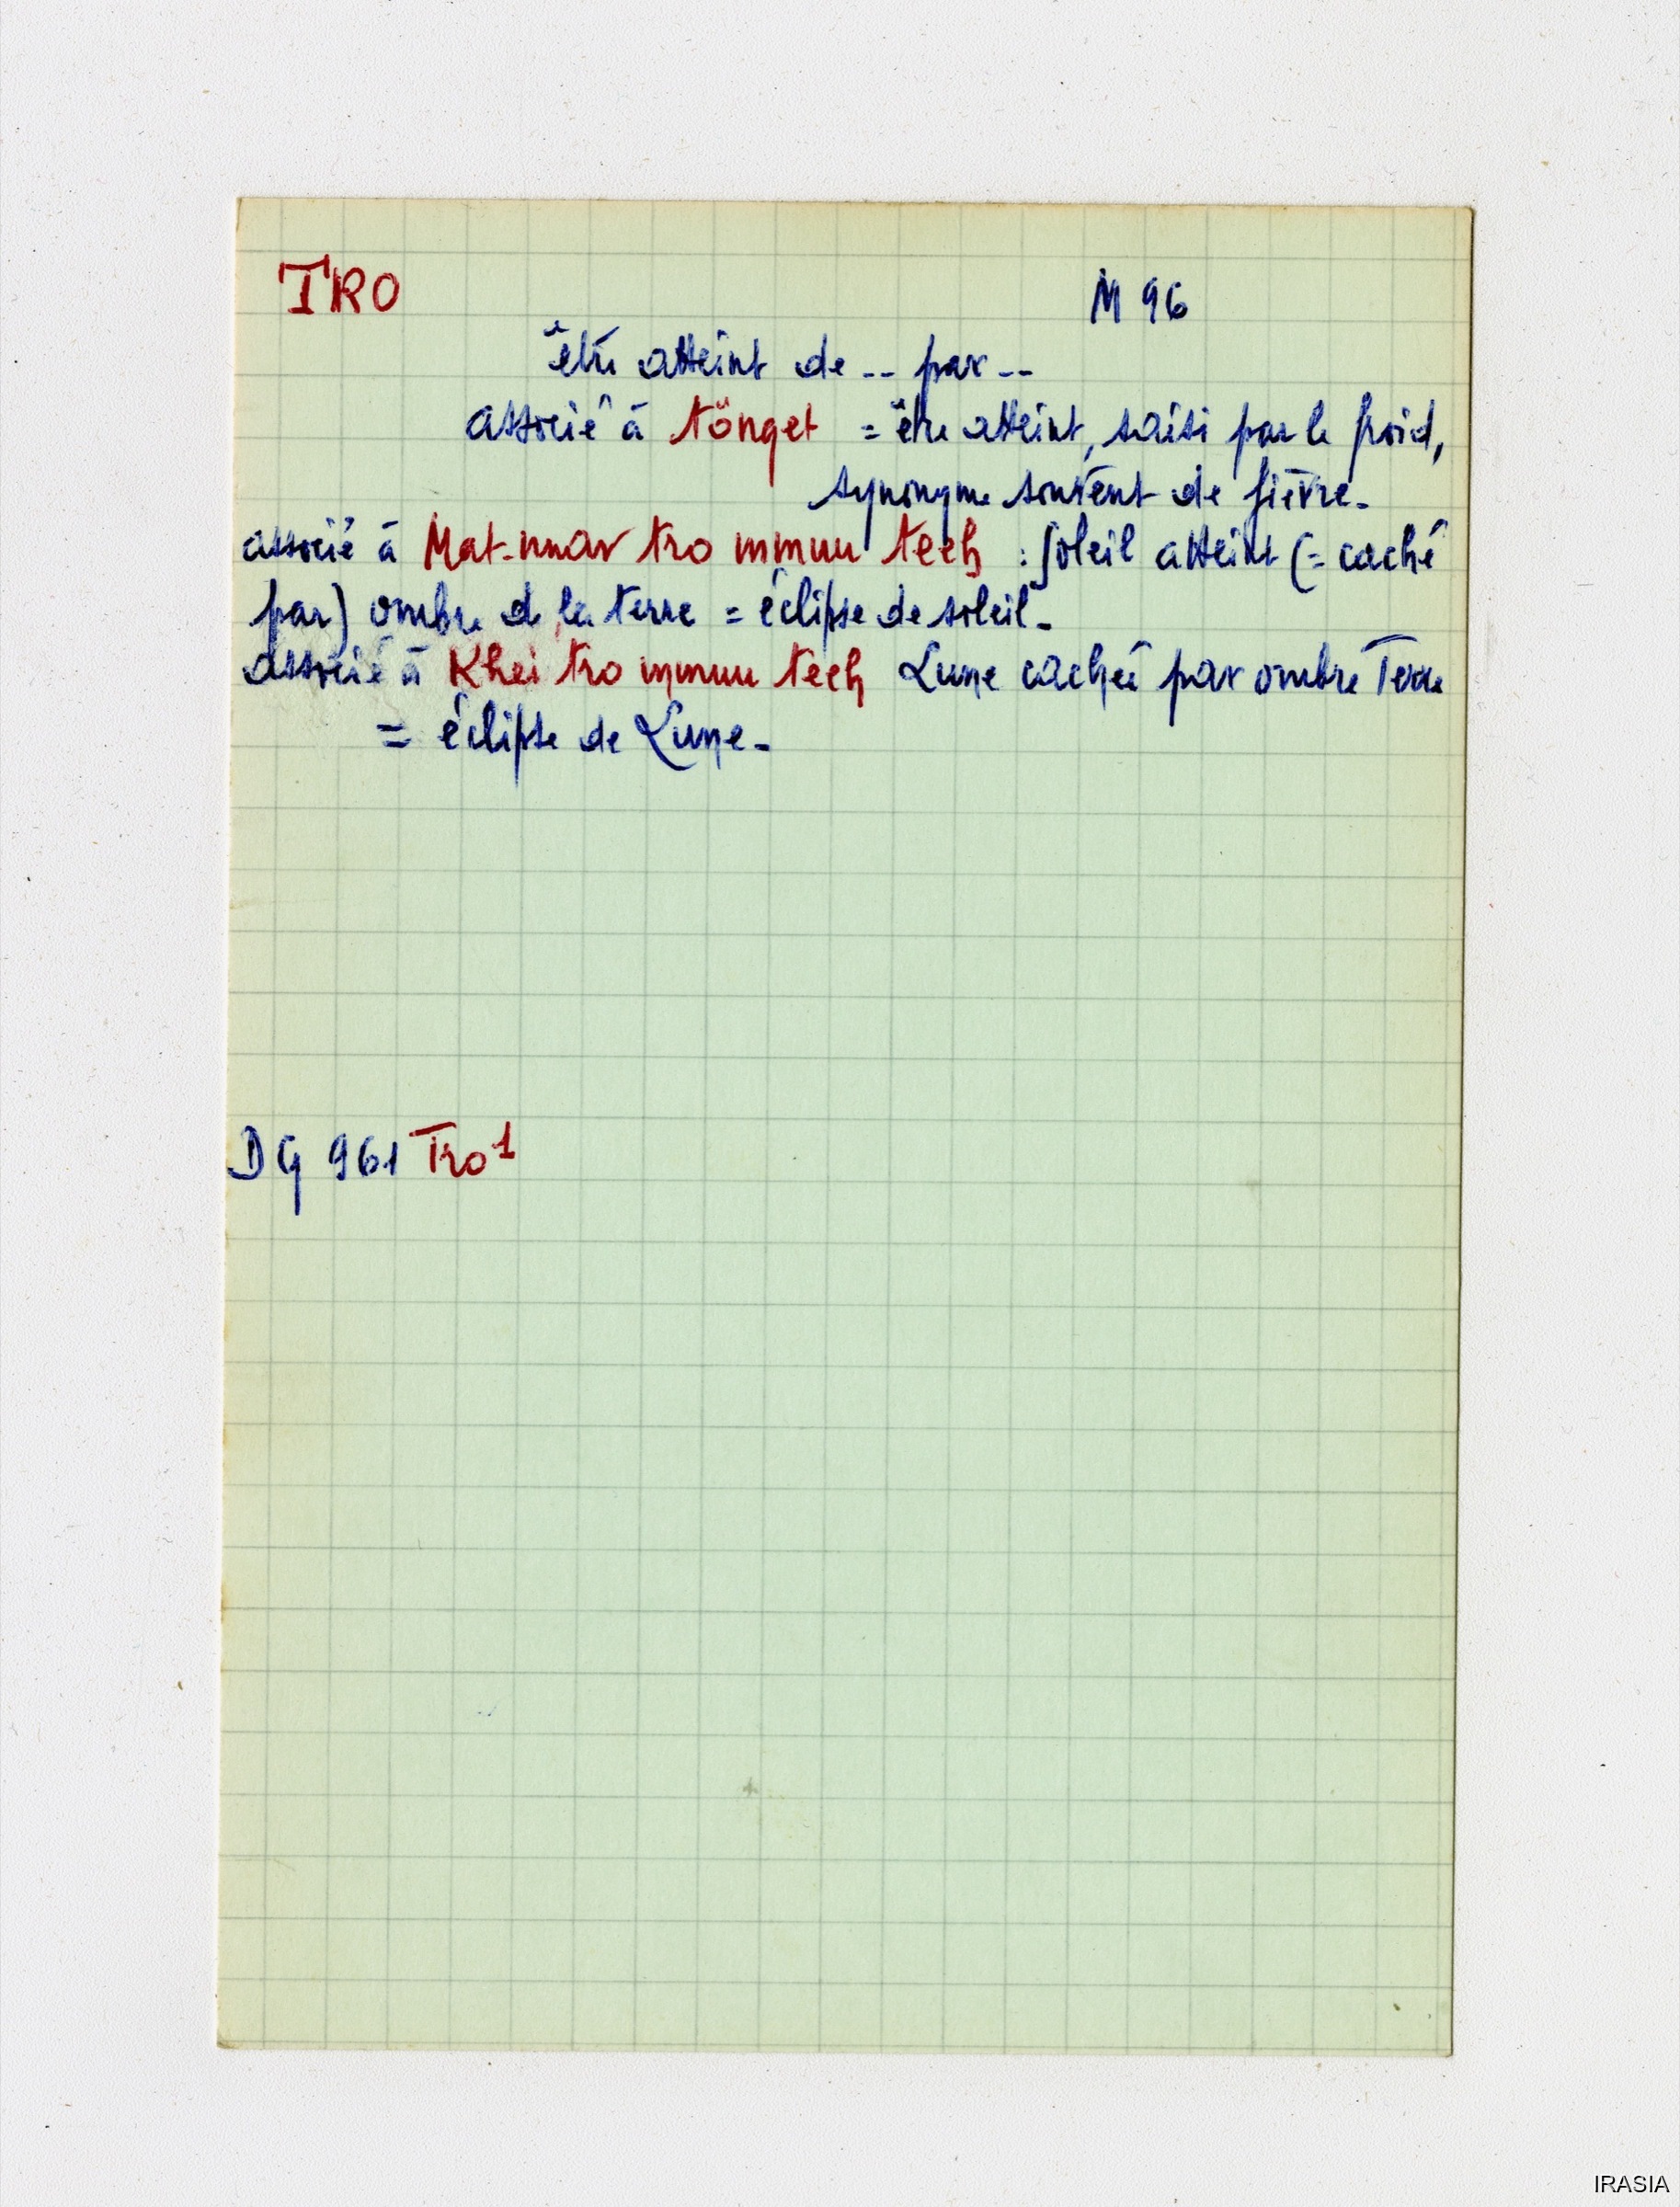 TRO M 96
être atteint de -- par --
associé à tönget = être atteint, saisi par le froid,
synonyme souvent de fièvre -
associé à Mat-nnar tro mmuu teeh : Soleil atteint (= caché
par) ombre de la terre = éclipse de soleil -
associé à Khei tro mmuu teeh Lune cachée par ombre Terre
= éclipse de Lune -
DG 961 Tro 1
IRASIA